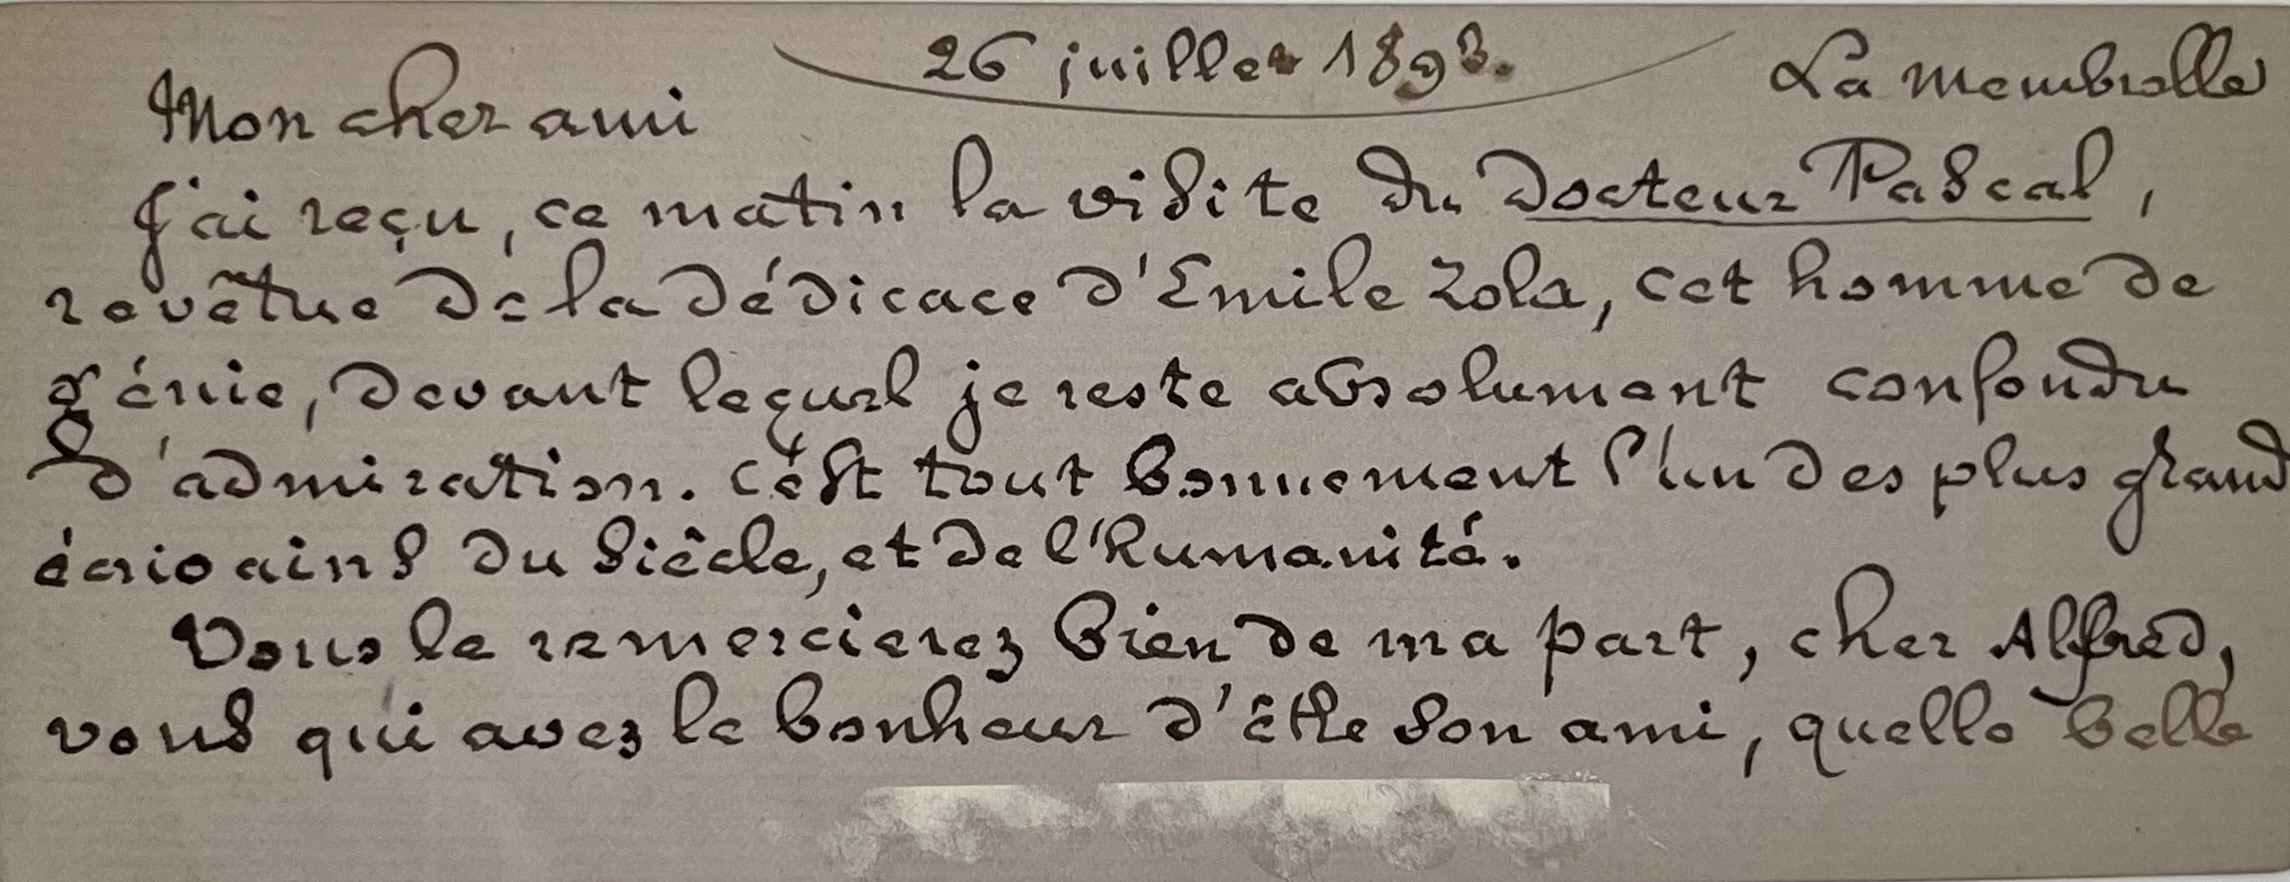 26 juillet 1893.
La Membrolle
Mon cher ami
J'ai reçu, ce matin la visite du Docteur Pascal,
revêtue de la dédicace d'Emile Zola, cet homme de
génie, devant lequel je reste absolument confondu
d'admiration. c'est tout bonnement l'un des plus grand
écrivains du siècle, et de l'humanité.
Vous le remercierez bien de ma part, cher Alfred,
vous qui avez le bonheur d'être son ami, quelle belle